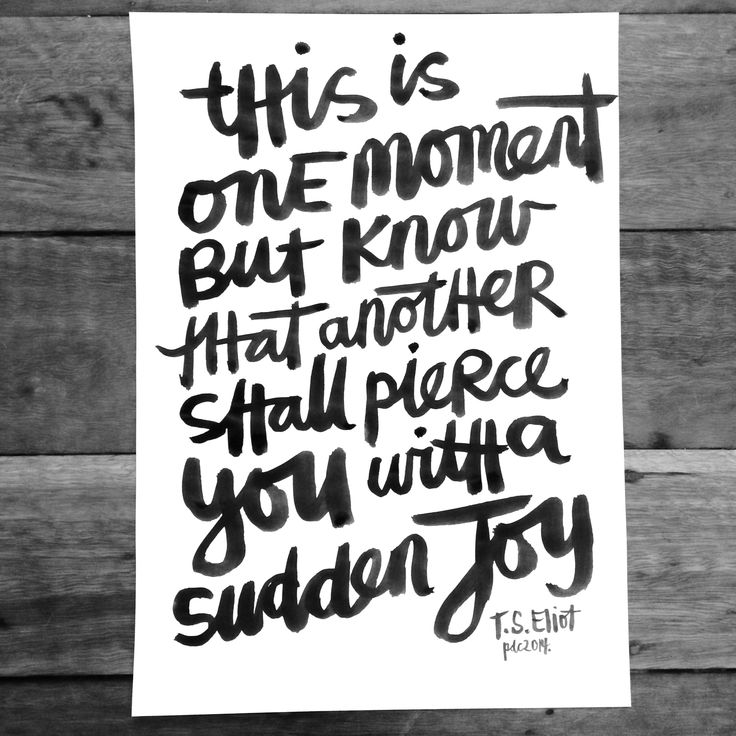 this is
ONE moment
BUT KNOW
tHat anotHER
SHall PIERCE
you witH a
sudden Joy
T.S. Eliot
pdc2014.